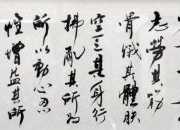 志勞其筋
骨餓其體膚
空乏其身行
拂亂其所為
所以動心忍
性增益其所